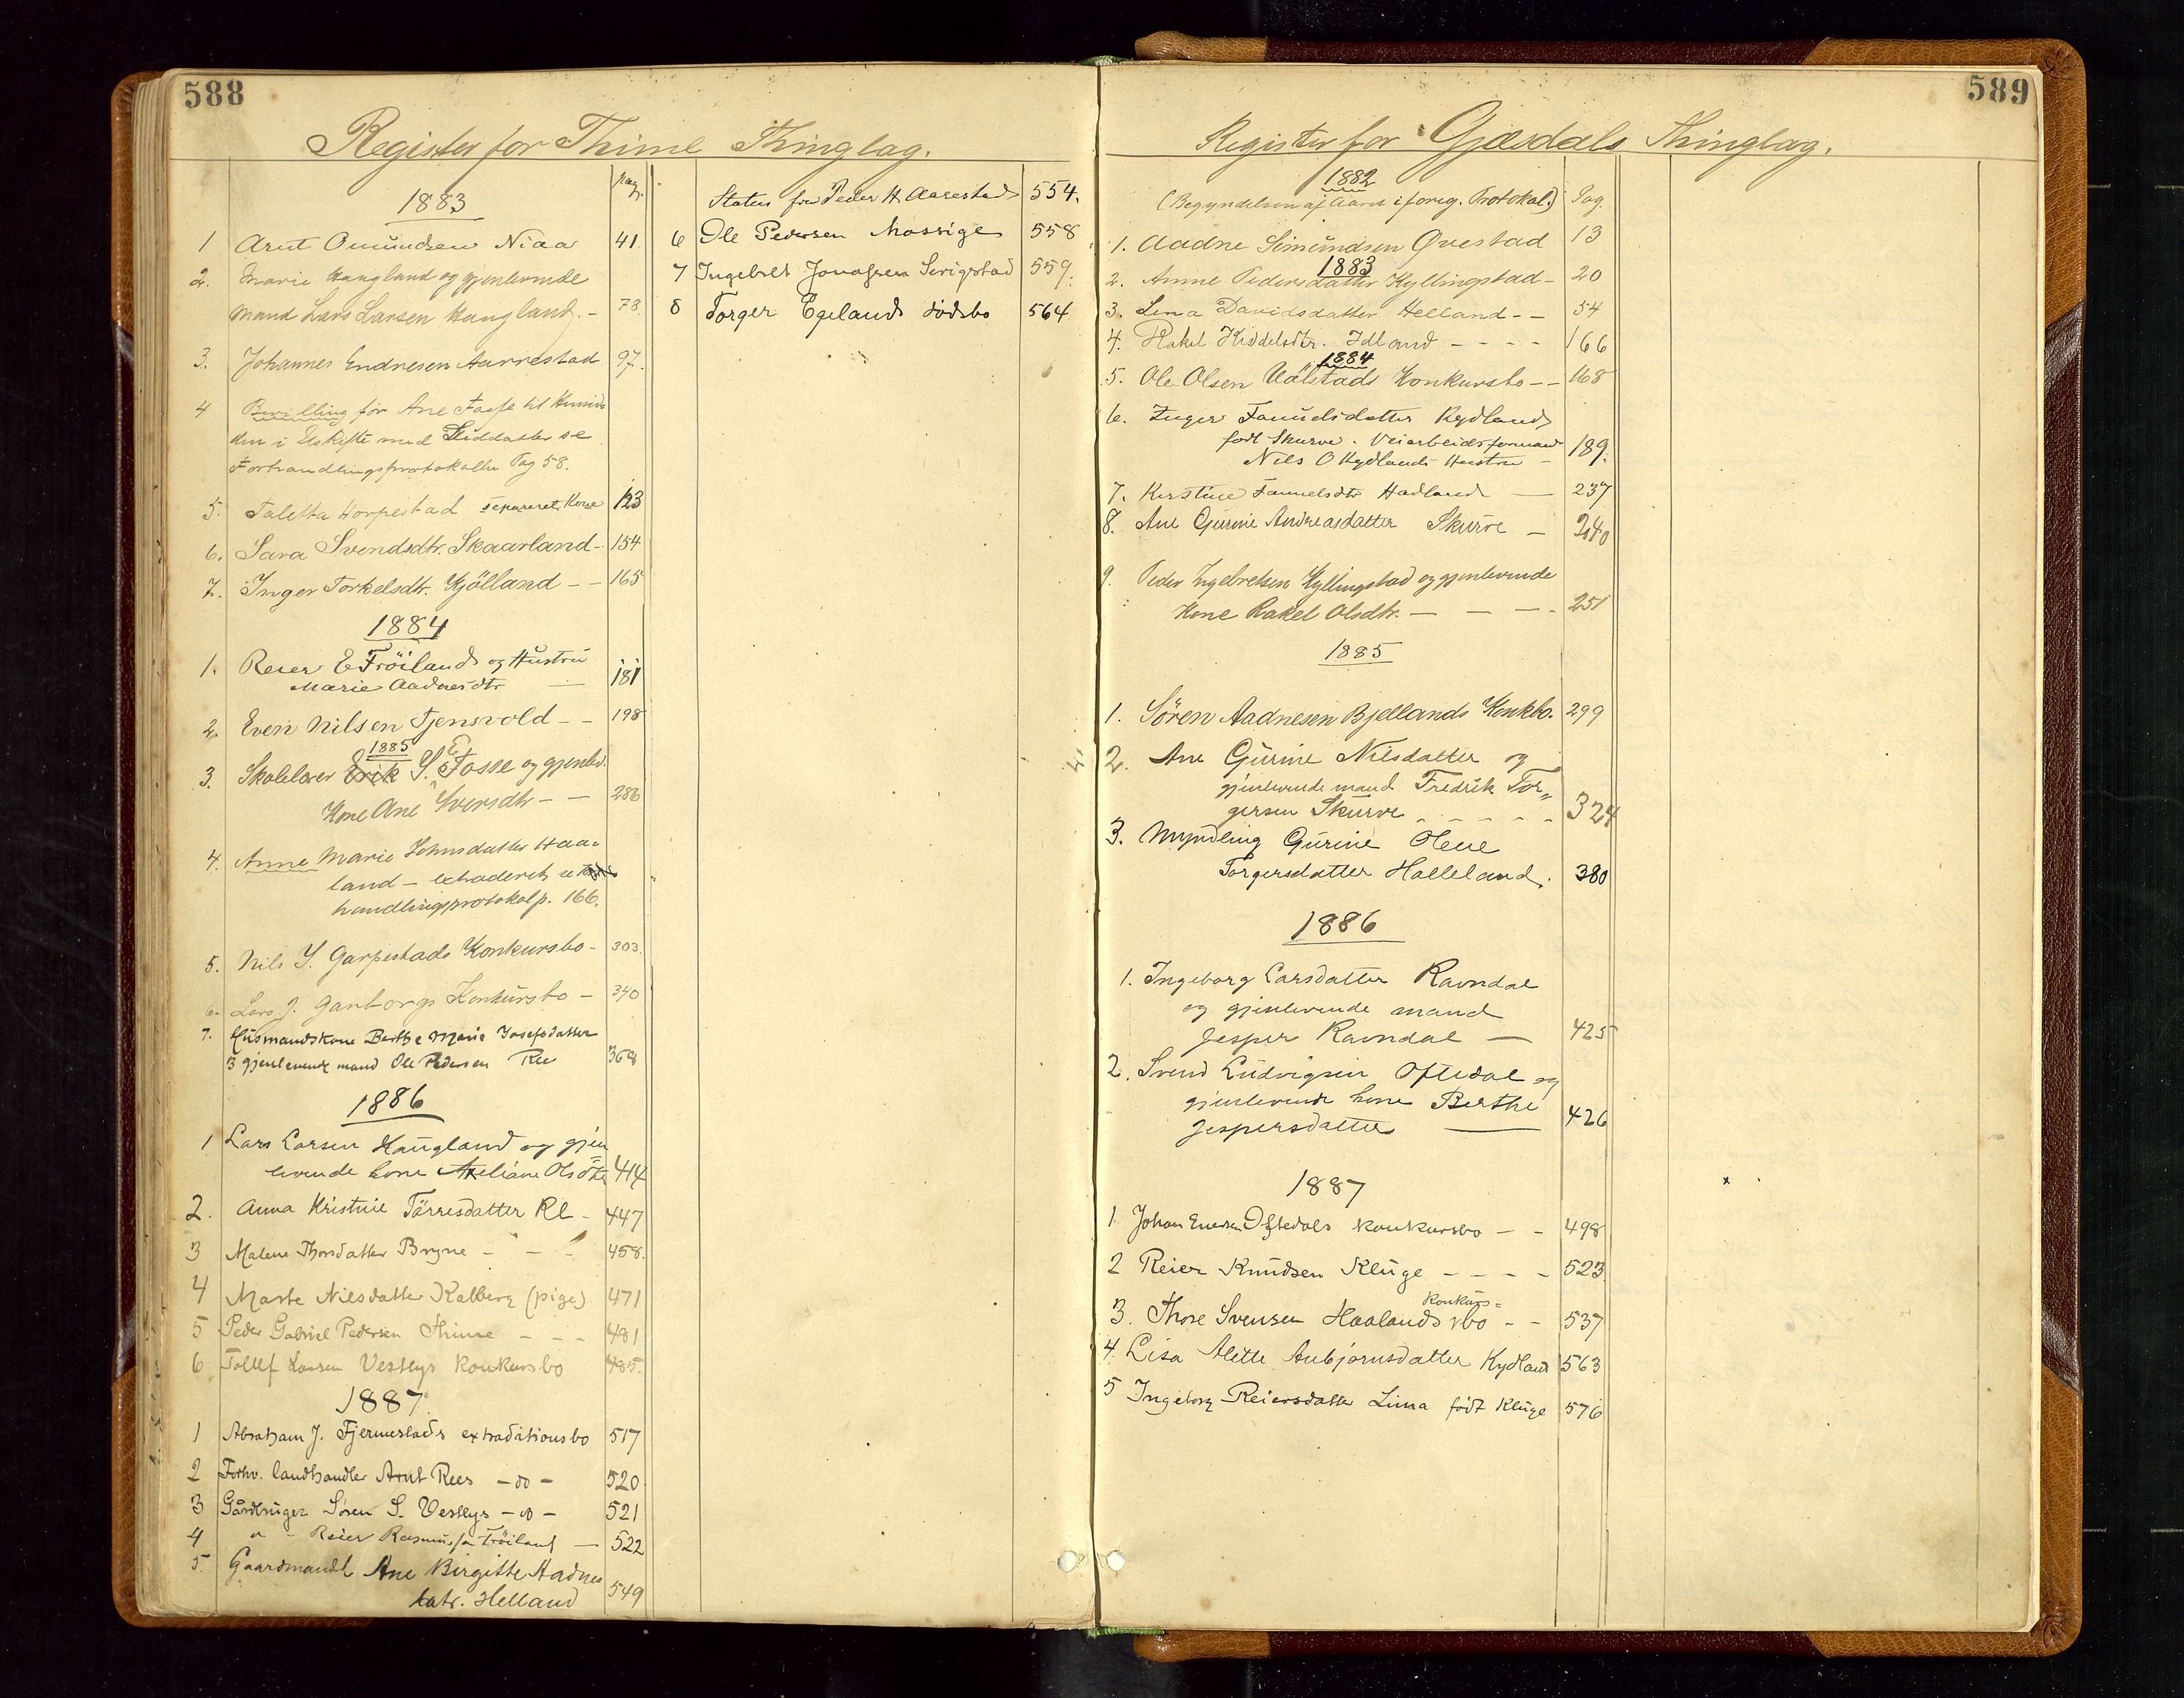 588
Register for Thime Thinglag.
Pag.
1883
1 Arnt Omundsen Niaa 41.
2. Marie Haugland og gjenlevende
Mand Lars Larsen Haugland. - 78.
3. Johannes Endresen Aarrestad 97.
4 Bevilling for Ane Fosse til Hensid-
den i Uskifte med Steddatter se
Forhandlingsprotokollen Pag 58.
5. Taletta Horpestad separeret Kone 123
6. Sara Svendsdtr. Skaarland - 154
7. Inger Torkelsdtr. Kjölland - - 165
1884
1. Reier E Fröiland og Hustru
Marie Aadnesdtr — 181
2. Even Nilsen Tjensvold - - 198
1885
3. Skolelærer Erik S. E Fosse og gjenlev.
Kone Ane Iversdtr - - 286
4. Anne Marie Johnsdatter Haa-
land - extraderet se For-
handlingsprotokol p. 166.
5. Nils Y. Garpestads Konkursbo - 303.
6. Lars J. Garborgs Konkursbo - 340
7. Husmandskone Berthe Marie Josefsdatter
& gjenlevende mand Ole Pedersen Ree 368
1886
1 Lars Larsen Haugland og gjen=
levende kone Axeliane Olsdtr 414
2. Anna Kristine Tørresdatter Re - 447
3 Malene Thorsdatter Bryne - - - 458.
4 Marte Nilsdatter Kalberg (pige) 471
5 Peder Gabriel Pedersen Thime - - - 481
6 Tollef Larsen Vestlys konkursbo 485.
1887
1 Abraham J. Fjermestads extraditionsbo 517
2 Forhv. landhandler Arnt Rees - do - 520.
3 Gårdbruger Sören S. Vestlys - do - 521
4 " - Reier Rasmussen Fröiland — 522
5. Gaardmandsk Ane Birgitte Aadnes
datr. Helland 549
Status for Peder H. Aarestad 554.
6 Ole Pedersen Mossige 558
7 Ingebret Jonassen Serigstad 559.
8 Torger Egelands dödsbo 564
589
Register for Gjæsdals Thinglag.
1882
(Begyndelsen af Aaret i forrig. Protokol.) Pag.
1. Aadne Simundsen Øvestad 13
1883
2. Anne Pedersdatter Kyllingstad - 20
3. Lena Davidsdatter Helland - - 54
4. Rakel Kiddelsdtr. Idland - - - - 166
1884
5. Ole Olsen Uålstads Konkursbo - - 168
6. Inger Samuelsdatter Kydland
født Skurve. Veiarbeidsformand
Nils O Kydlands Hustru - 189.
7. Kirstine Samuelsdtr Hadland — 237
8. Ane Gurine Andreasdatter Skurve - 240
9. Peder Ingebretsen Kyllingstad og gjenlevende
Kone Rakel Olsdtr. - - - 251
1885
1. Sören Aadnesen Bjellands Konkbo. 299
2. Ane Gurine Nilsdatter og
gjenlevende mand Fredrik Tor„
gersen Skurve - - - - - 324
3. Myndling Gurine Olene
Torgersdatter Halleland. 380
1886
1. Ingeborg Larsdatter Ravndal
og gjenlevende mand
Jesper Ravndal — 425
2. Svend Ludvigsen Oftedal og
gjenlevende kone Berthe
Jespersdatter — 426
1887
1 Johan Enersen Oftedals konkursbo - - 498
2 Reier Knudsen Kluge - - - - 523
konkurs=
3. Thore Svensen Haalands bo - - 537
4. Lisa Alette Aubjörnsdatter Kydland 563
5 Ingeborg Reiersdatter Lima födt Kluge 576